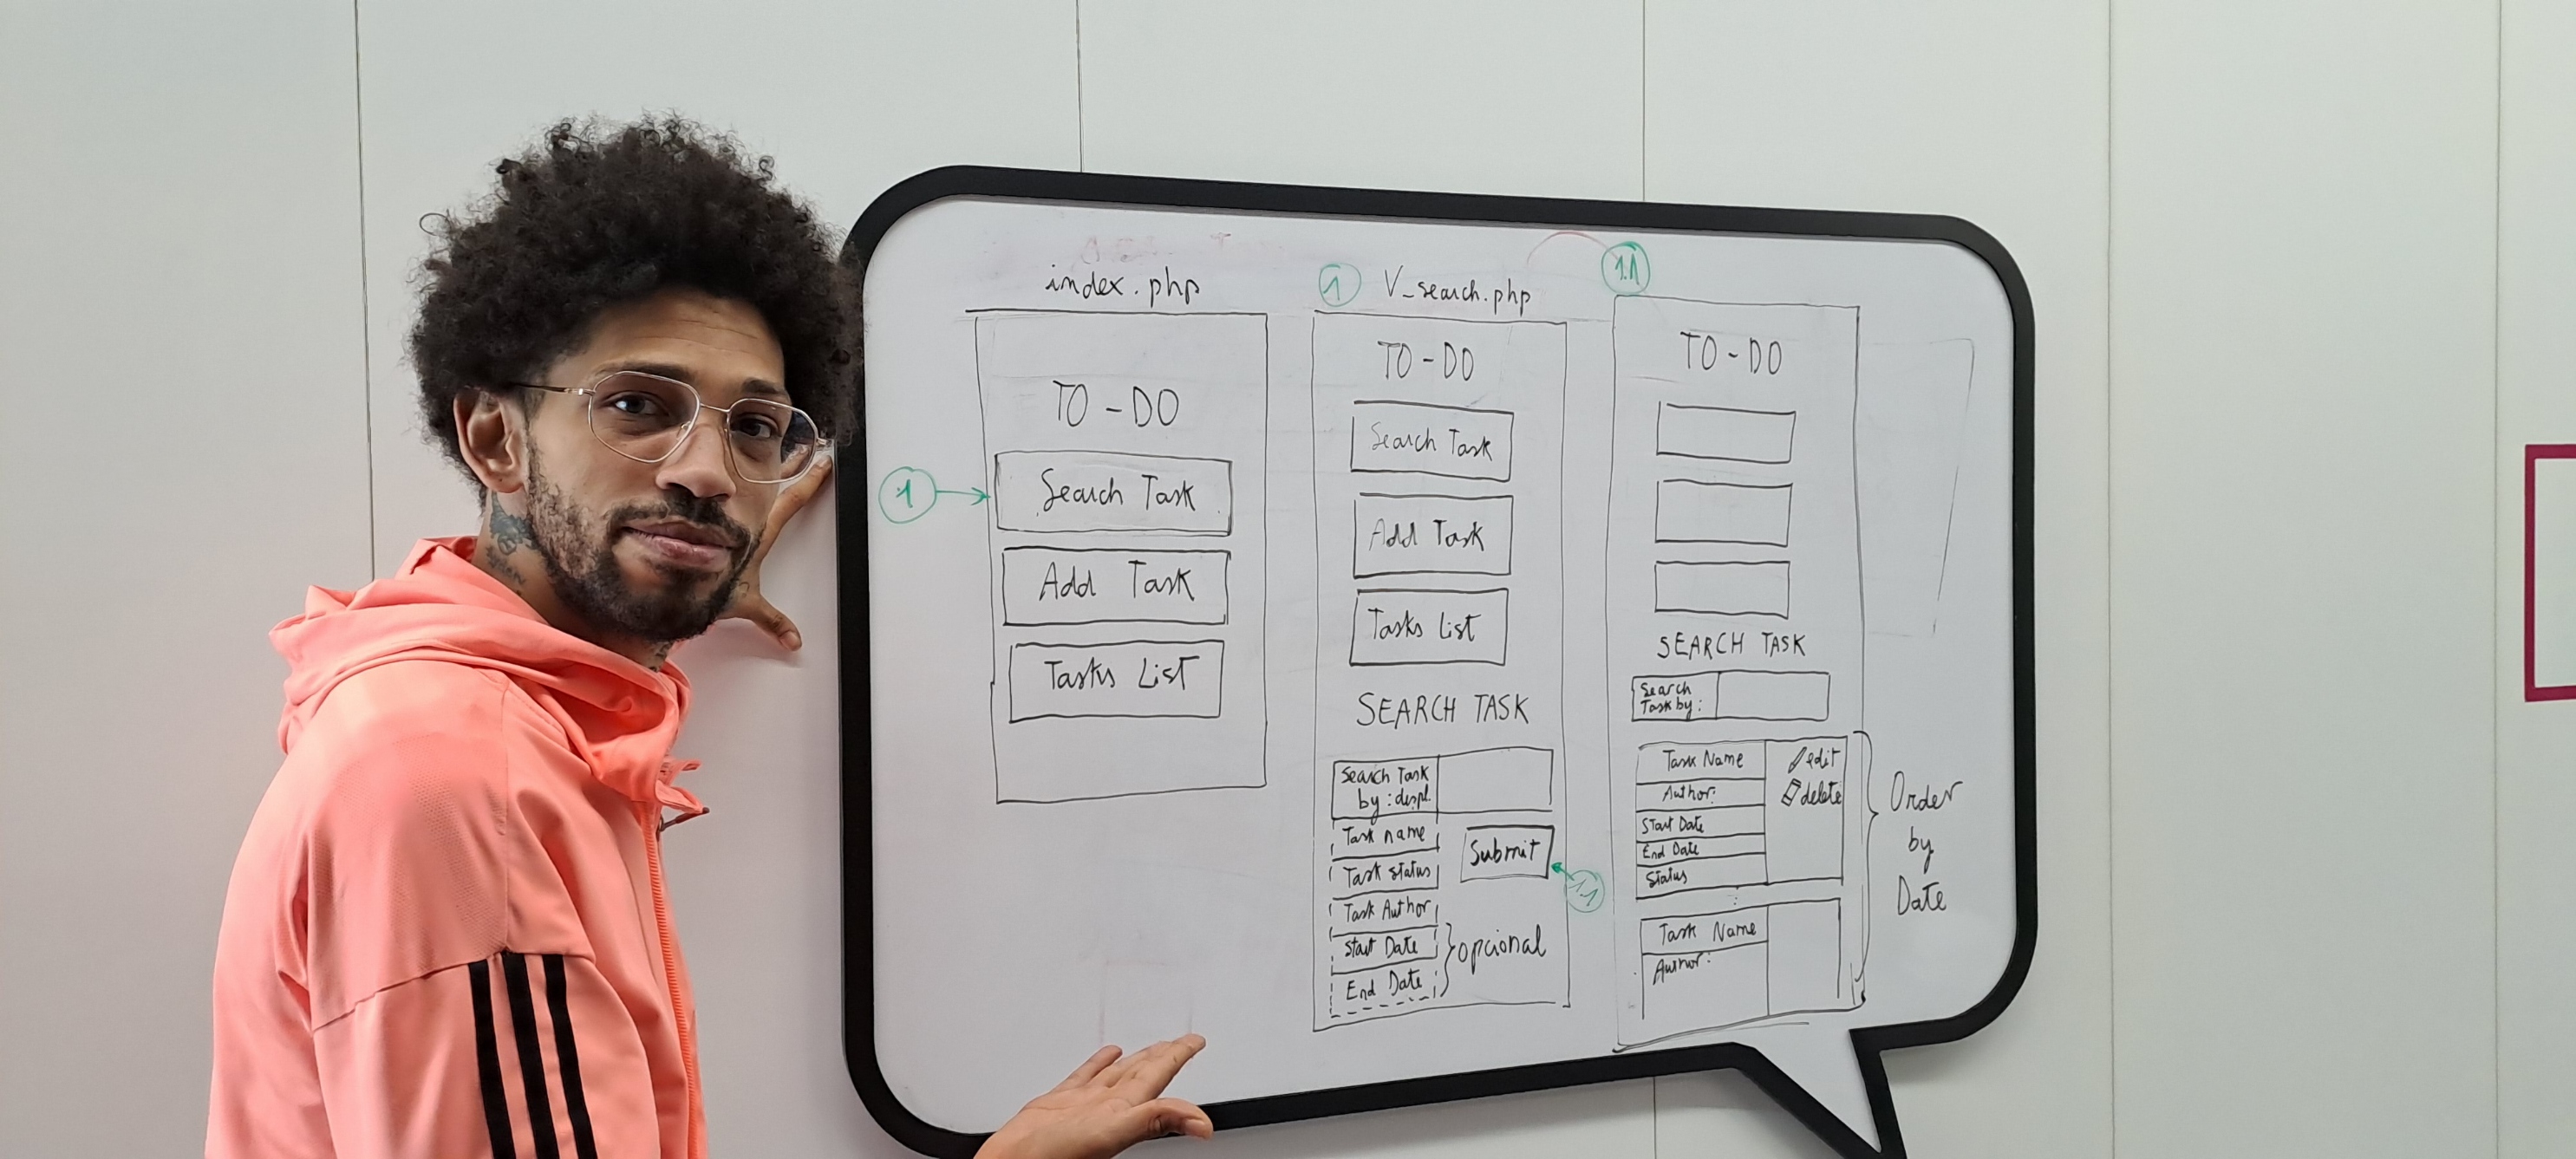 index.php
TO-DO
1
Search Task
Add Task
Tasks List
1
V_search.php
TO-DO
Search Task
Add Task
Tasks List
SEARCH TASK
Search Task
by: despl.
Task name
Task status
Submit
1.1
Task Author
Start Date
End Date
opcional
1.1
TO-DO
SEARCH TASK
Search
Task by:
Task Name
Author:
Start Date
End Date
Status
edit
delete
Task Name
Author:
Order
by
Date